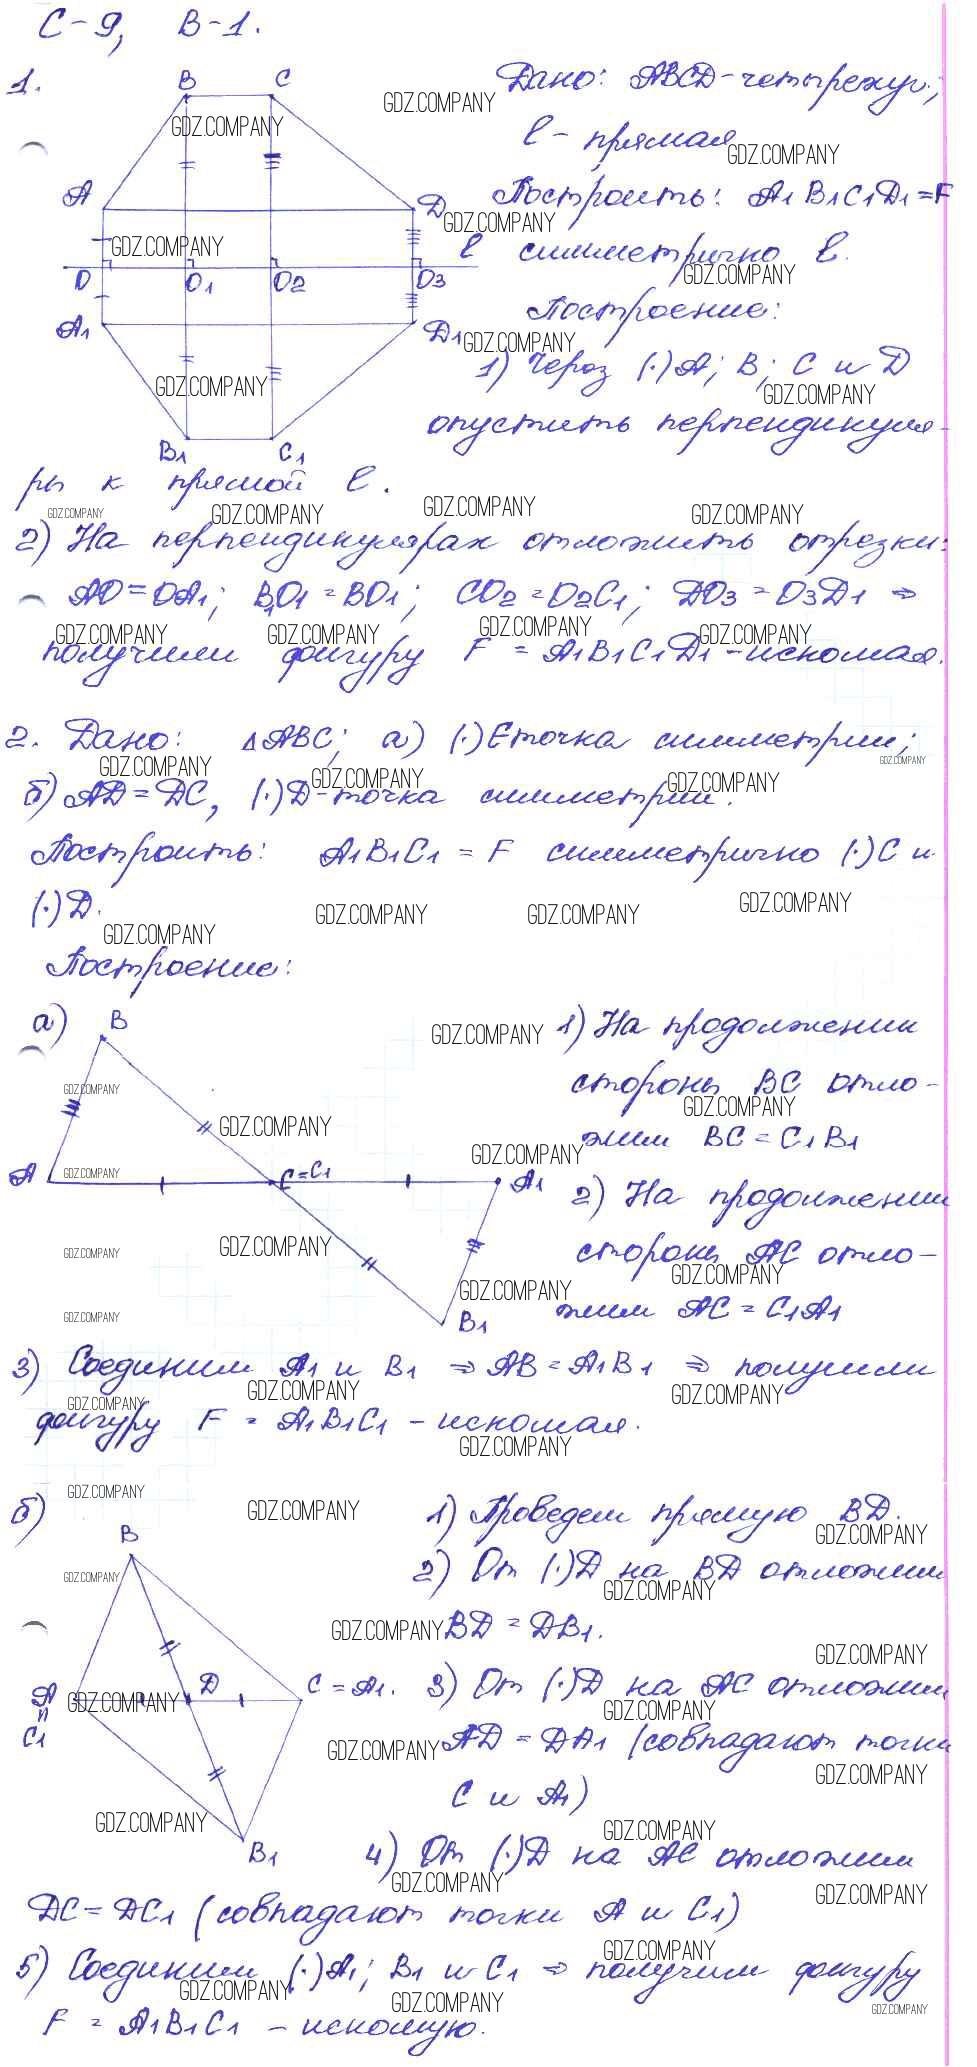 С-9, В-1.
1.
B C
A D
l
O O1 O2 O3
A1 D1
B1 C1
Дано: ABCD - четырехуг.;
l - прямая
Построить: A1B1C1D1 = F
симметрично l.
Построение:
1) Через (·)A; B; C и D
опустить перпендикуля-
ры к прямой l.
2) На перпендикулярах отложить отрезки:
AO = OA1; B1O1 = BO1; CO2 = O2C1; DO3 = O3D1 ⇒
получили фигуру F = A1B1C1D1 - искомая.
2. Дано: ΔABC; а) (·)C точка симметрии;
б) AD = DC, (·)D - точка симметрии.
Построить: A1B1C1 = F симметрично (·)C и
(·)D.
Построение:
а)
B
A C=C1 A1
B1
1) На продолжении
стороны BC отло-
жим BC = C1B1
2) На продолжении
стороны AC отло-
жим AC = C1A1
3) Соединим A1 и B1 ⇒ AB = A1B1 ⇒ получили
фигуру F = A1B1C1 - искомая.
б)
B
A D C = A1.
C1
B1
1) Проведем прямую BD.
2) От (·)D на BD отложим
BD = DB1.
3) От (·)D на AC отложим
AD = DA1 (совпадают точки
C и A1)
4) От (·)D на AC отложим
DC = DC1 (совпадают точки A и C1)
5) Соединим (·)A1; B1 и C1 ⇒ получим фигуру
F = A1B1C1 - искомую.
GDZ.COMPANY